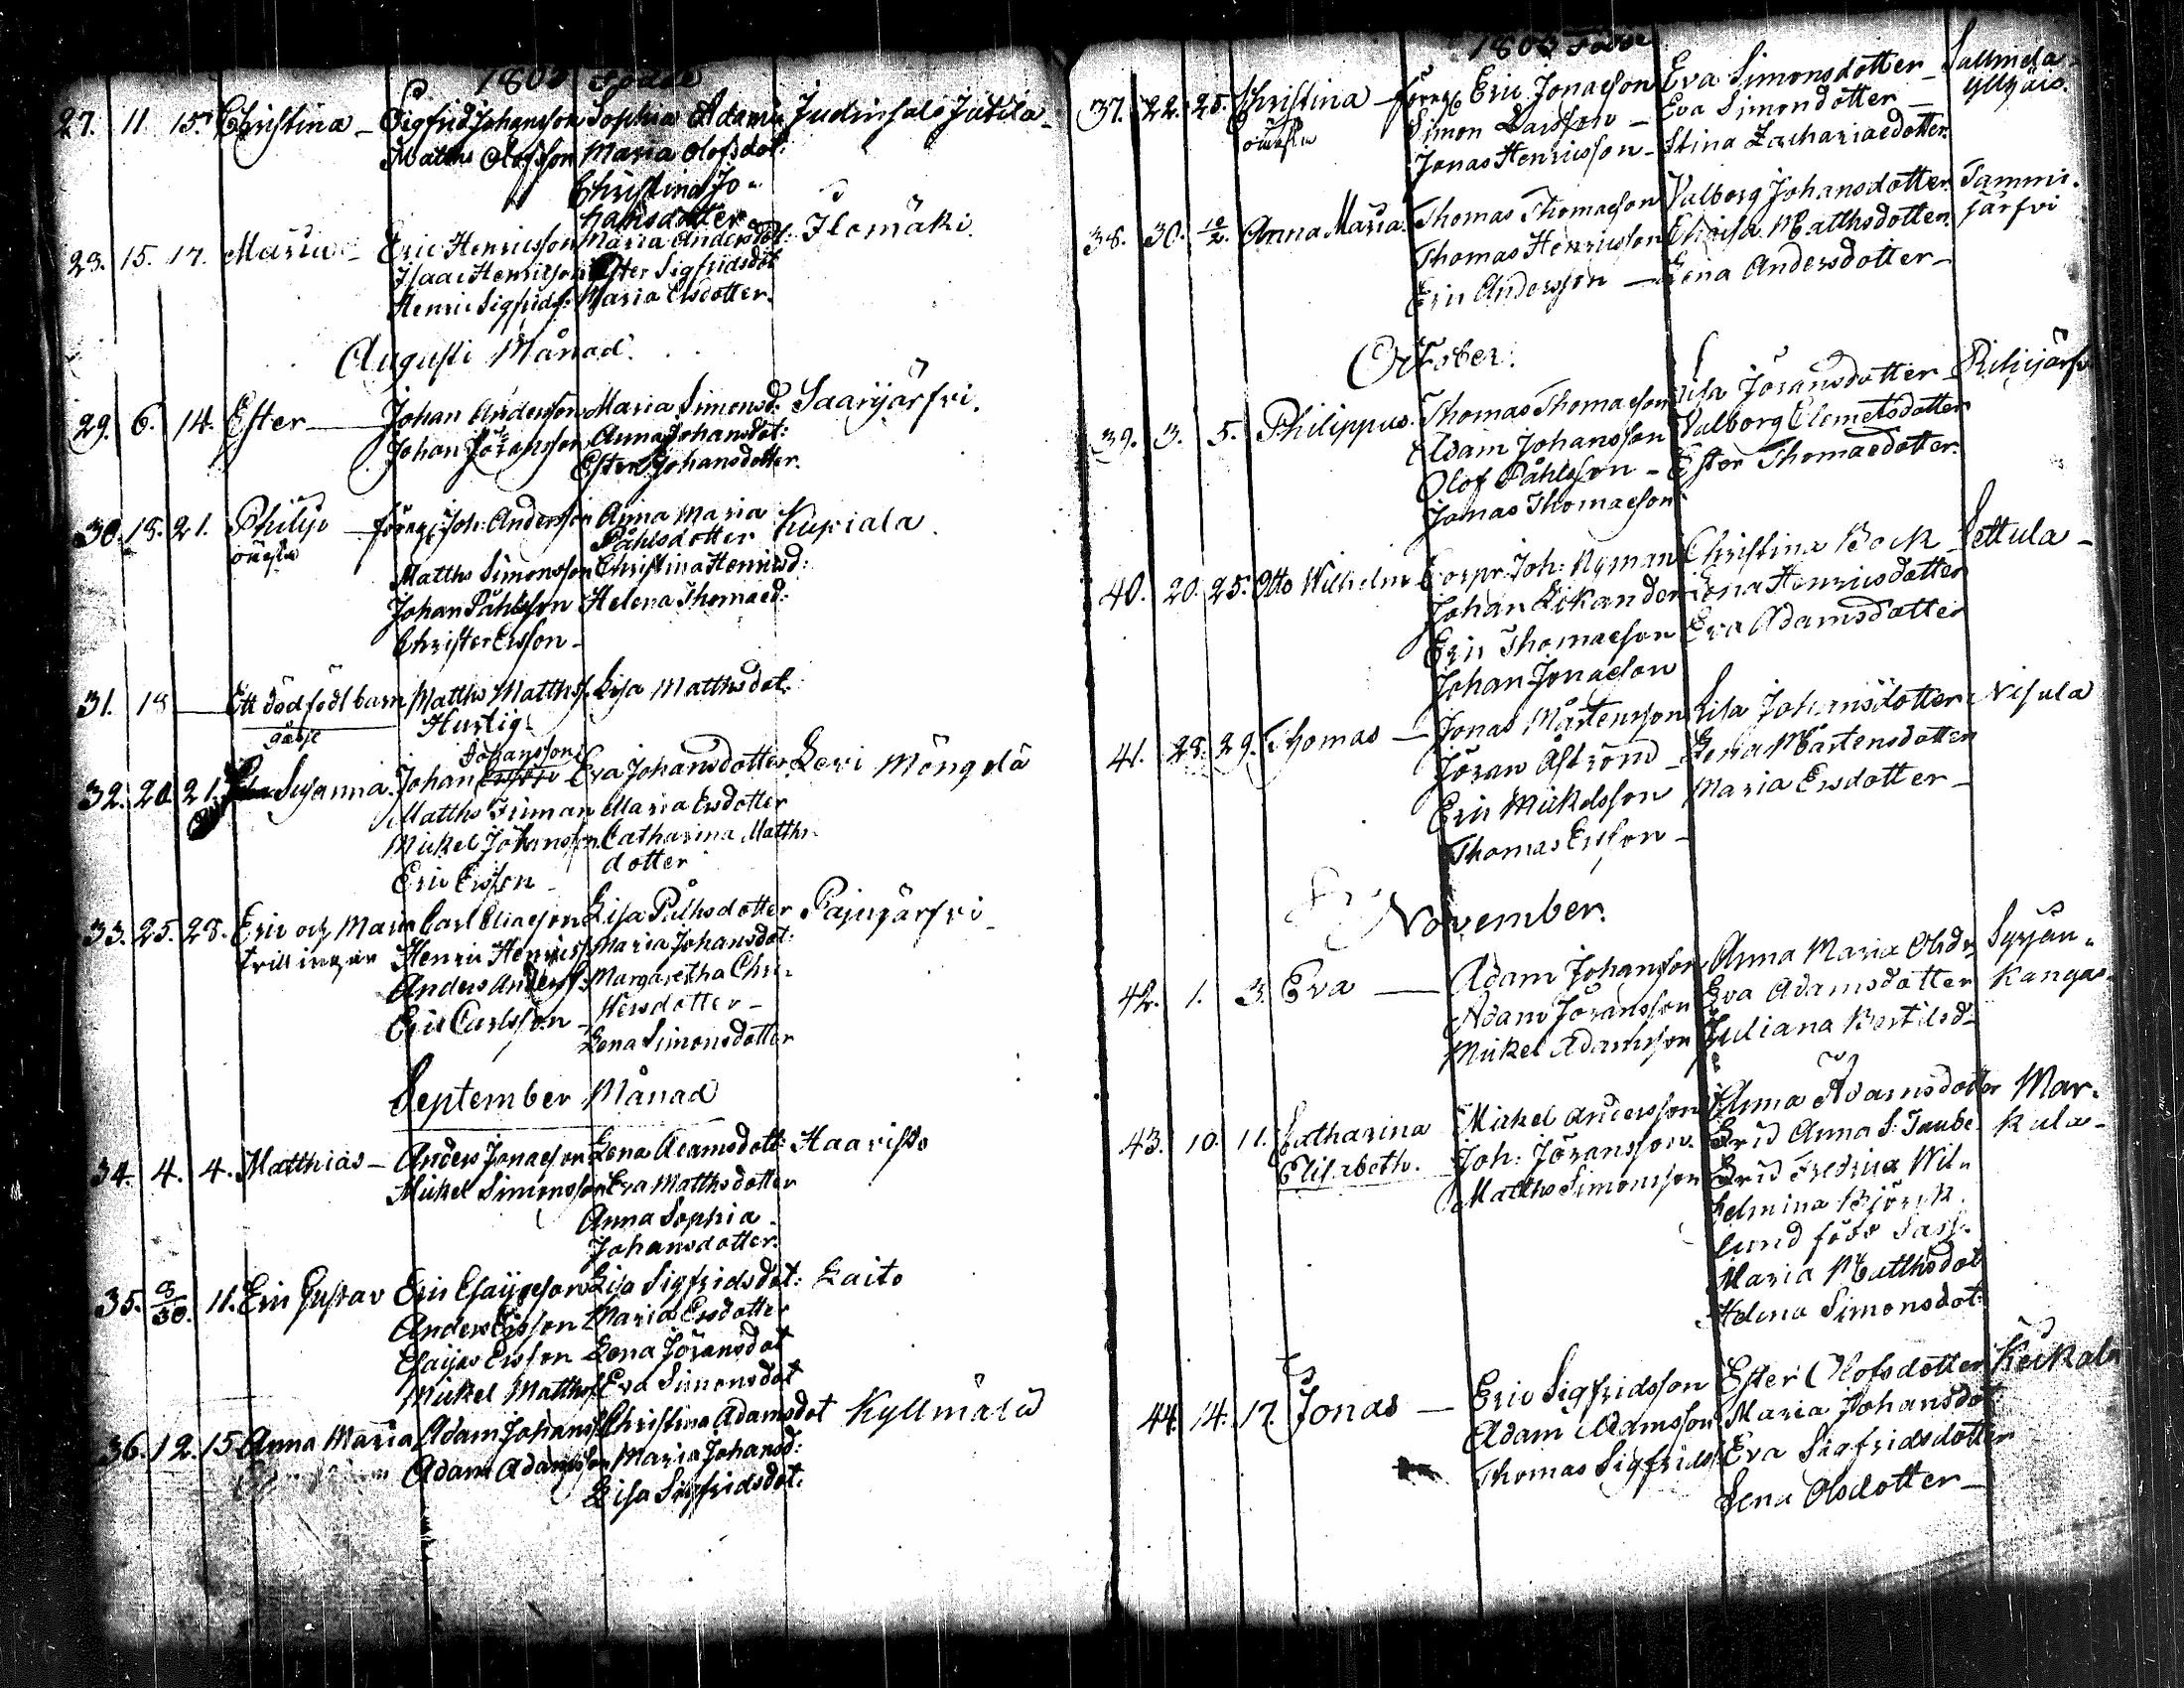 1803 Födde
27. 11. 15. Christina – Sigfrid Johansson Sophia Adamsd Judinsalo Jutila –
Matths Olofsson Maria Olofsdot:
Christina Jo-
hansdotter
28. 15. 17. Maria – Eric Henricsson Maria Andersdot: Ilomäki.
Isaac Henricsson Ester Sigfridsdot
Henric Sigfrids: Maria Ersdotter.
Augusti Månad.
29. 6. 14. Ester – Johan Andersson Maria Simonsd: Saarijärfvi.
Johan Jöransson Anna Johansdot:
Ester Johansdotter.
30. 18. 21. Philip – Joh: Andersson Anna Maria Kupiala.
oäkta Påhlsdotter
Matths Simonsson Christina Henricsd:
Johan Påhlsson Helena Thomaed:
Christer Ersson –
31. 18 – Ett dödfödt barn Matths Matthss. Lisa Matthsdot.
gåsse Hurtig
Johansson
32. 20. 21. Susanna. Johan Eva Johansdotter Levi Mängelä
Matths Friman Maria Ersdotter
Mickel Johansson Catharina Matths
Eric Ersson – dotter
33. 25. 28. Eric och Maria Carl Eliaeson Lisa Påhlsdotter Pajujärfvi –
tvillingar Henric Henricss. Maria Johansdot:
Anders Anderss: Margaretha Chri-
Eric Carlsson – stersdotter –
Lena Simonsdotter
September Månad
34. 4. 4. Matthias – Anders Jonaeson Lena Adamsdott: Haaristo
Mickel Simonsson Eva Matthsdotter
Anna Sophia
Johansdotter.
35. 8/30. 11. Eric Gustav Eric Esaiaeson Lisa Sigfridsdot: Laito
Anders Ersson Maria Ersdotter
Esaias Ersson Lena Jöransdot
Mickel Matthss Eva Simonsdot
36. 12. 15 Anna Maria Adam Johanss Christina Adamsdot Kyllmälä
Adam Adamsson Maria Johansd:
Lisa Sigfridsdot.
1803 Födde
37. 22. 25. Christina – Eric Jonaeson Eva Simonsdotter – Sallmela
oäkta Simon Larsson – Eva Simondotter – yllgäis.
Jonas Henricsson – Stina Zachariaedotter.
38. 30. 10/2. Anna Maria. Thomas Thomaeson Valborg Johansdotter. Tammi-
Thomas Henricsson Chaisa Matthsdotter. järfvi
Eric Andersson – Lena Andersdotter –
October.
39. 3. 5. Philippus. Thomas Thomaeson Lisa Jöransdotter –
Adam Johansson Valborg Clemetsdotter
Olof Påhlsson – Ester Thomaedotter.
Jonas Thomaeson
40. 20. 25. Otto Wilhelm Corpr. Joh: Nyman Christina Bock Settula –
Johan Likander Lena Henricsdotter
Eric Thomaeson Eva Adamsdotter
Johan Jonaeson
41. 28. 29. Thomas – Jonas Mårtensson Lisa Johansdotter Nisula
Jöran Åström – Lena Mårtensdotter
Eric Mickelsson Maria Ersdotter –
Thomas Ersson –
November.
42. 1. 3. Eva – Adam Johansson Anna Maria Olsdr Syrjän-
Adam Jöransson Eva Adamsdotter kangas
Mickel Adamsson Juliana Bertilsd –
43. 10. 11. Catharina Mickel Andersson Anna Adamsdotter Mar-
Elisabeth. Joh: Jöransson. Brud Anna S. Taube kula –
Matths Simonsson Brud Fredrica Wil-
helmina Björck
lund född Sass.
Maria Matthsdot
Helena Simonsdot.
44. 14. 17. Jonas – Eric Sigfridsson Ester Olofsdotter Keikala
Adam Adamsson Maria Johansdot
Thomas Sigfrids Eva Sigfridsdotter
Lena Olsdotter –